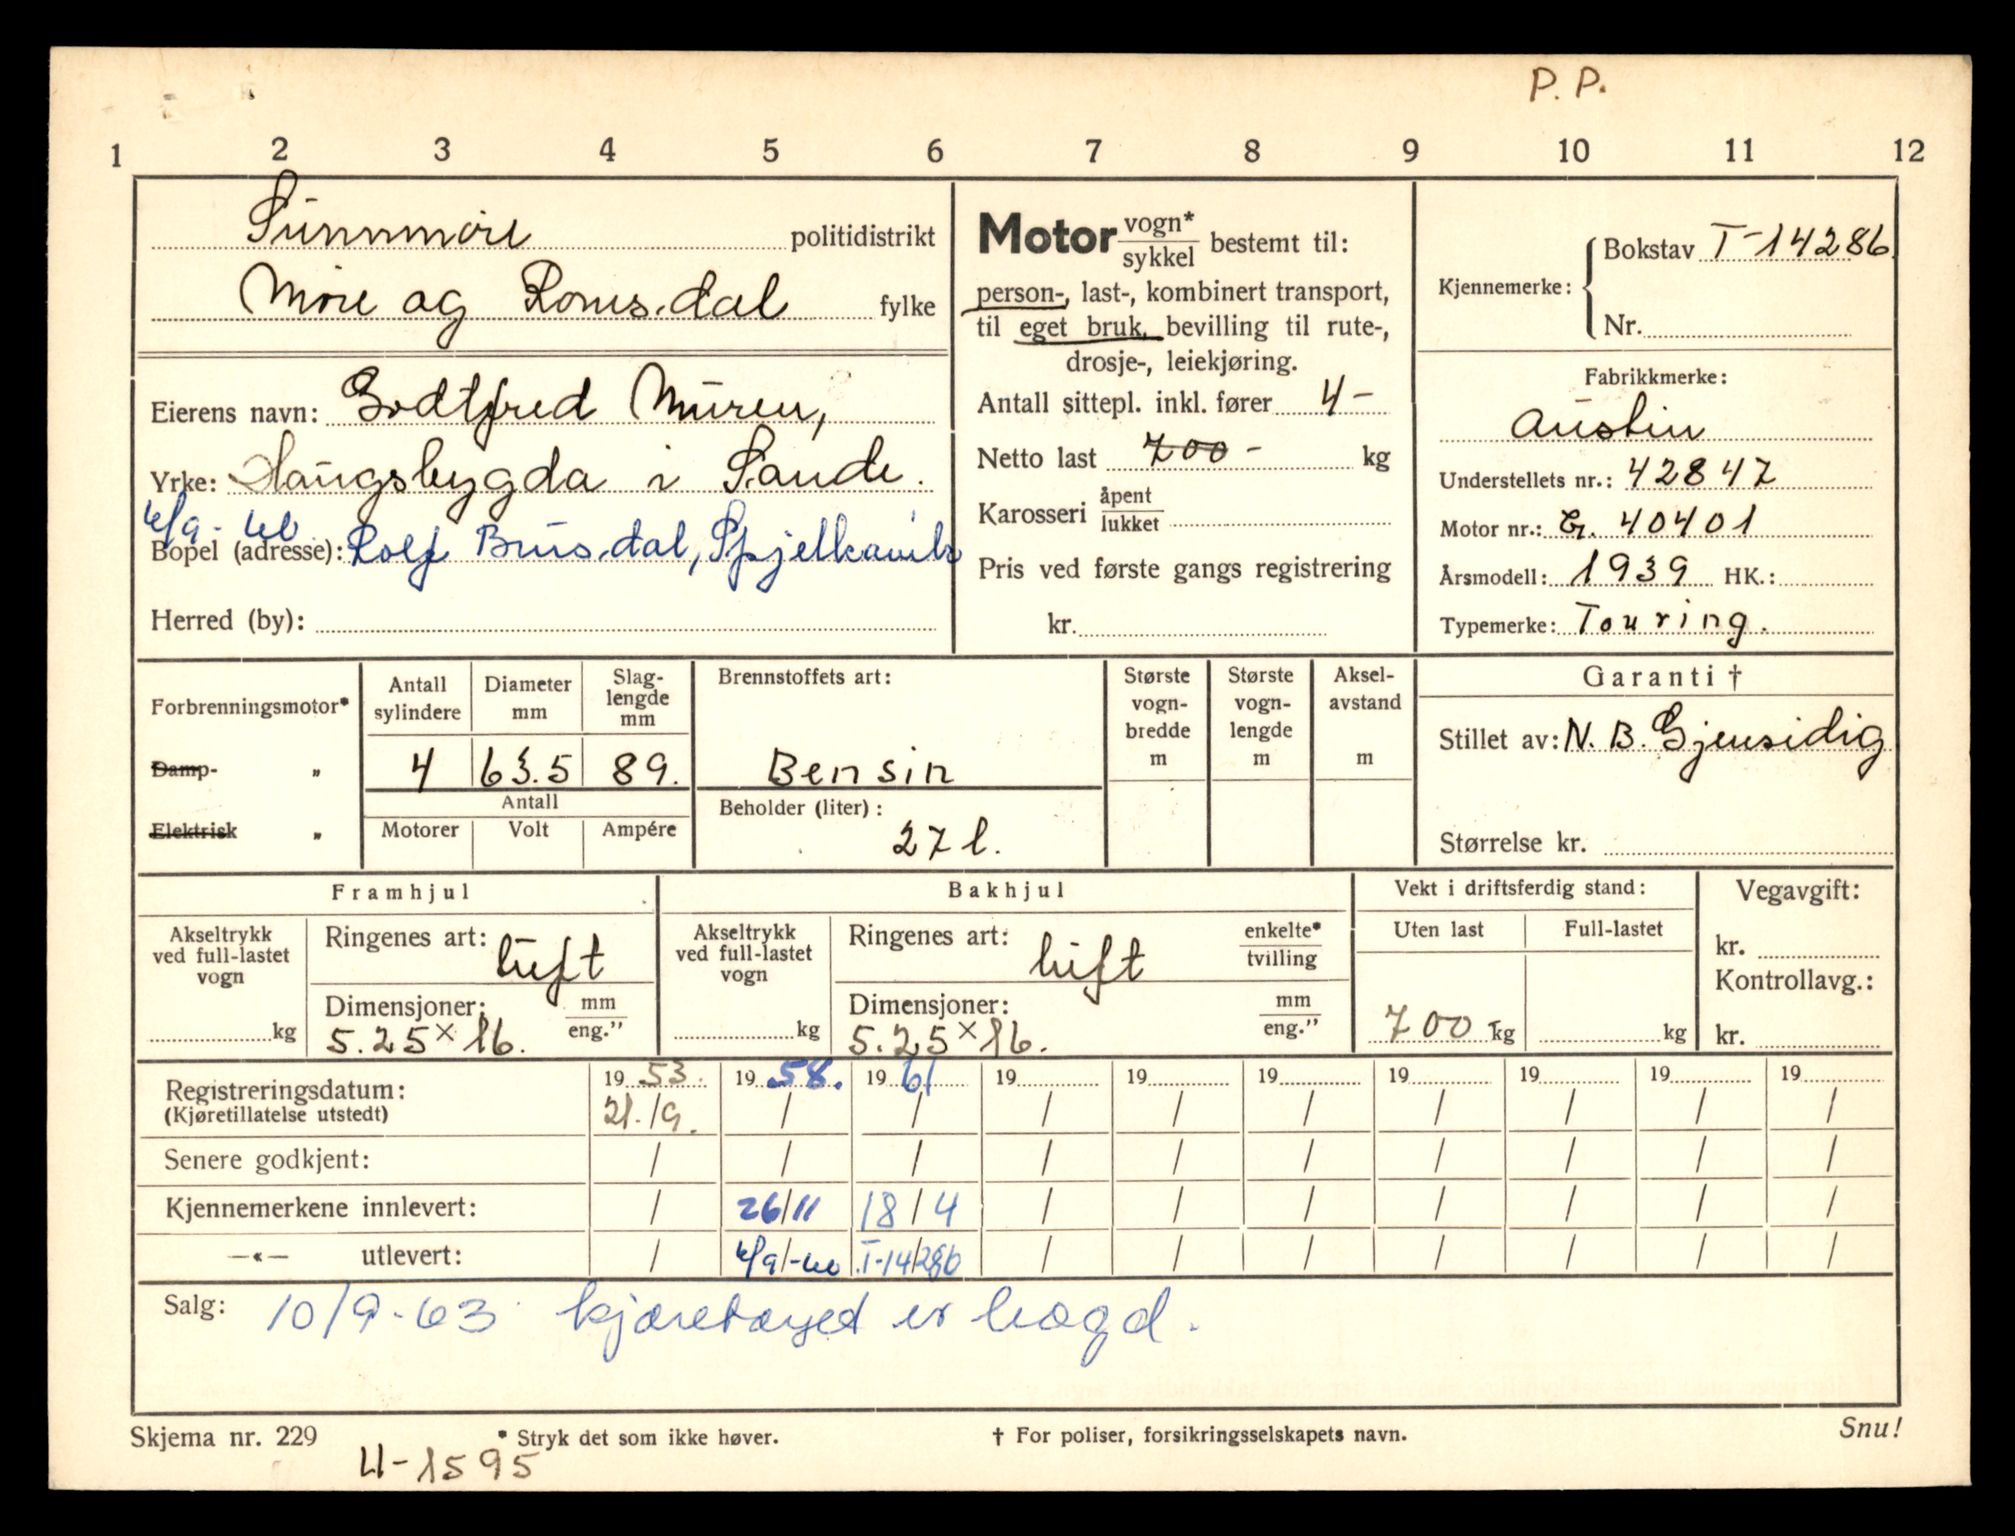 P. P.
1 2 3 4 5 6 7 8 9 10 11 12
Sunnmøre politidistrikt
Møre og Romsdal fylke
Eierens navn: Godtfred Muren,
Yrke: Haugsbygda i Sande.
6/9-60
Bopel (adresse): Rolf Brusdal, Spjelkavik
Herred (by):
Motor vogn* / sykkel bestemt til:
person-, last-, kombinert transport,
til eget bruk, bevilling til rute-,
drosje-, leiekjøring.
Antall sittepl. inkl. fører 4-
Netto last 700- kg
Karosseri åpent / lukket
Pris ved første gangs registrering
kr.
Kjennemerke: Bokstav T-14286
Nr.
Fabrikkmerke:
Austin
Understellets nr.: 42847
Motor nr.: G. 40401
Årsmodell: 1939 HK.:
Typemerke: Touring.
Forbrenningsmotor*
Damp- "
Elektrisk "
Antall sylindere Diameter mm Slag-lengde mm
4 63.5 89.
Antall
Motorer Volt Ampére
Brennstoffets art:
Bensin
Beholder (liter):
27 l.
Største vogn-bredde m
Største vogn-lengde m
Aksel-avstand m
Garanti †
Stillet av: N. B. Gjensidig
Størrelse kr.
Framhjul
Akseltrykk ved full-lastet vogn
kg
Ringenes art: luft
Dimensjoner: mm / eng."
5.25 × 16.
Bakhjul
Akseltrykk ved full-lastet vogn
kg
Ringenes art: luft enkelte* / tvilling
Dimensjoner: mm / eng."
5.25 × 16.
Vekt i driftsferdig stand:
Uten last Full-lastet
700 kg kg
Vegavgift:
kr.
Kontrollavg.:
kr.
Registreringsdatum: 19 53. 19 58. 19 61 19 19 19 19 19 19 19
(Kjøretillatelse utstedt) 21./9. / / / / / / / / /
Senere godkjent: / / / / / / / / / /
Kjennemerkene innlevert: / 26/11 18/4 / / / / / / /
—«— utlevert: / 6/9-60 T-14286 / / / / / / /
Salg: 10/9-63 kjøretøyet er hogd.
Skjema nr. 229
* Stryk det som ikke høver.
† For poliser, forsikringsselskapets navn.
Snu!
U-1595